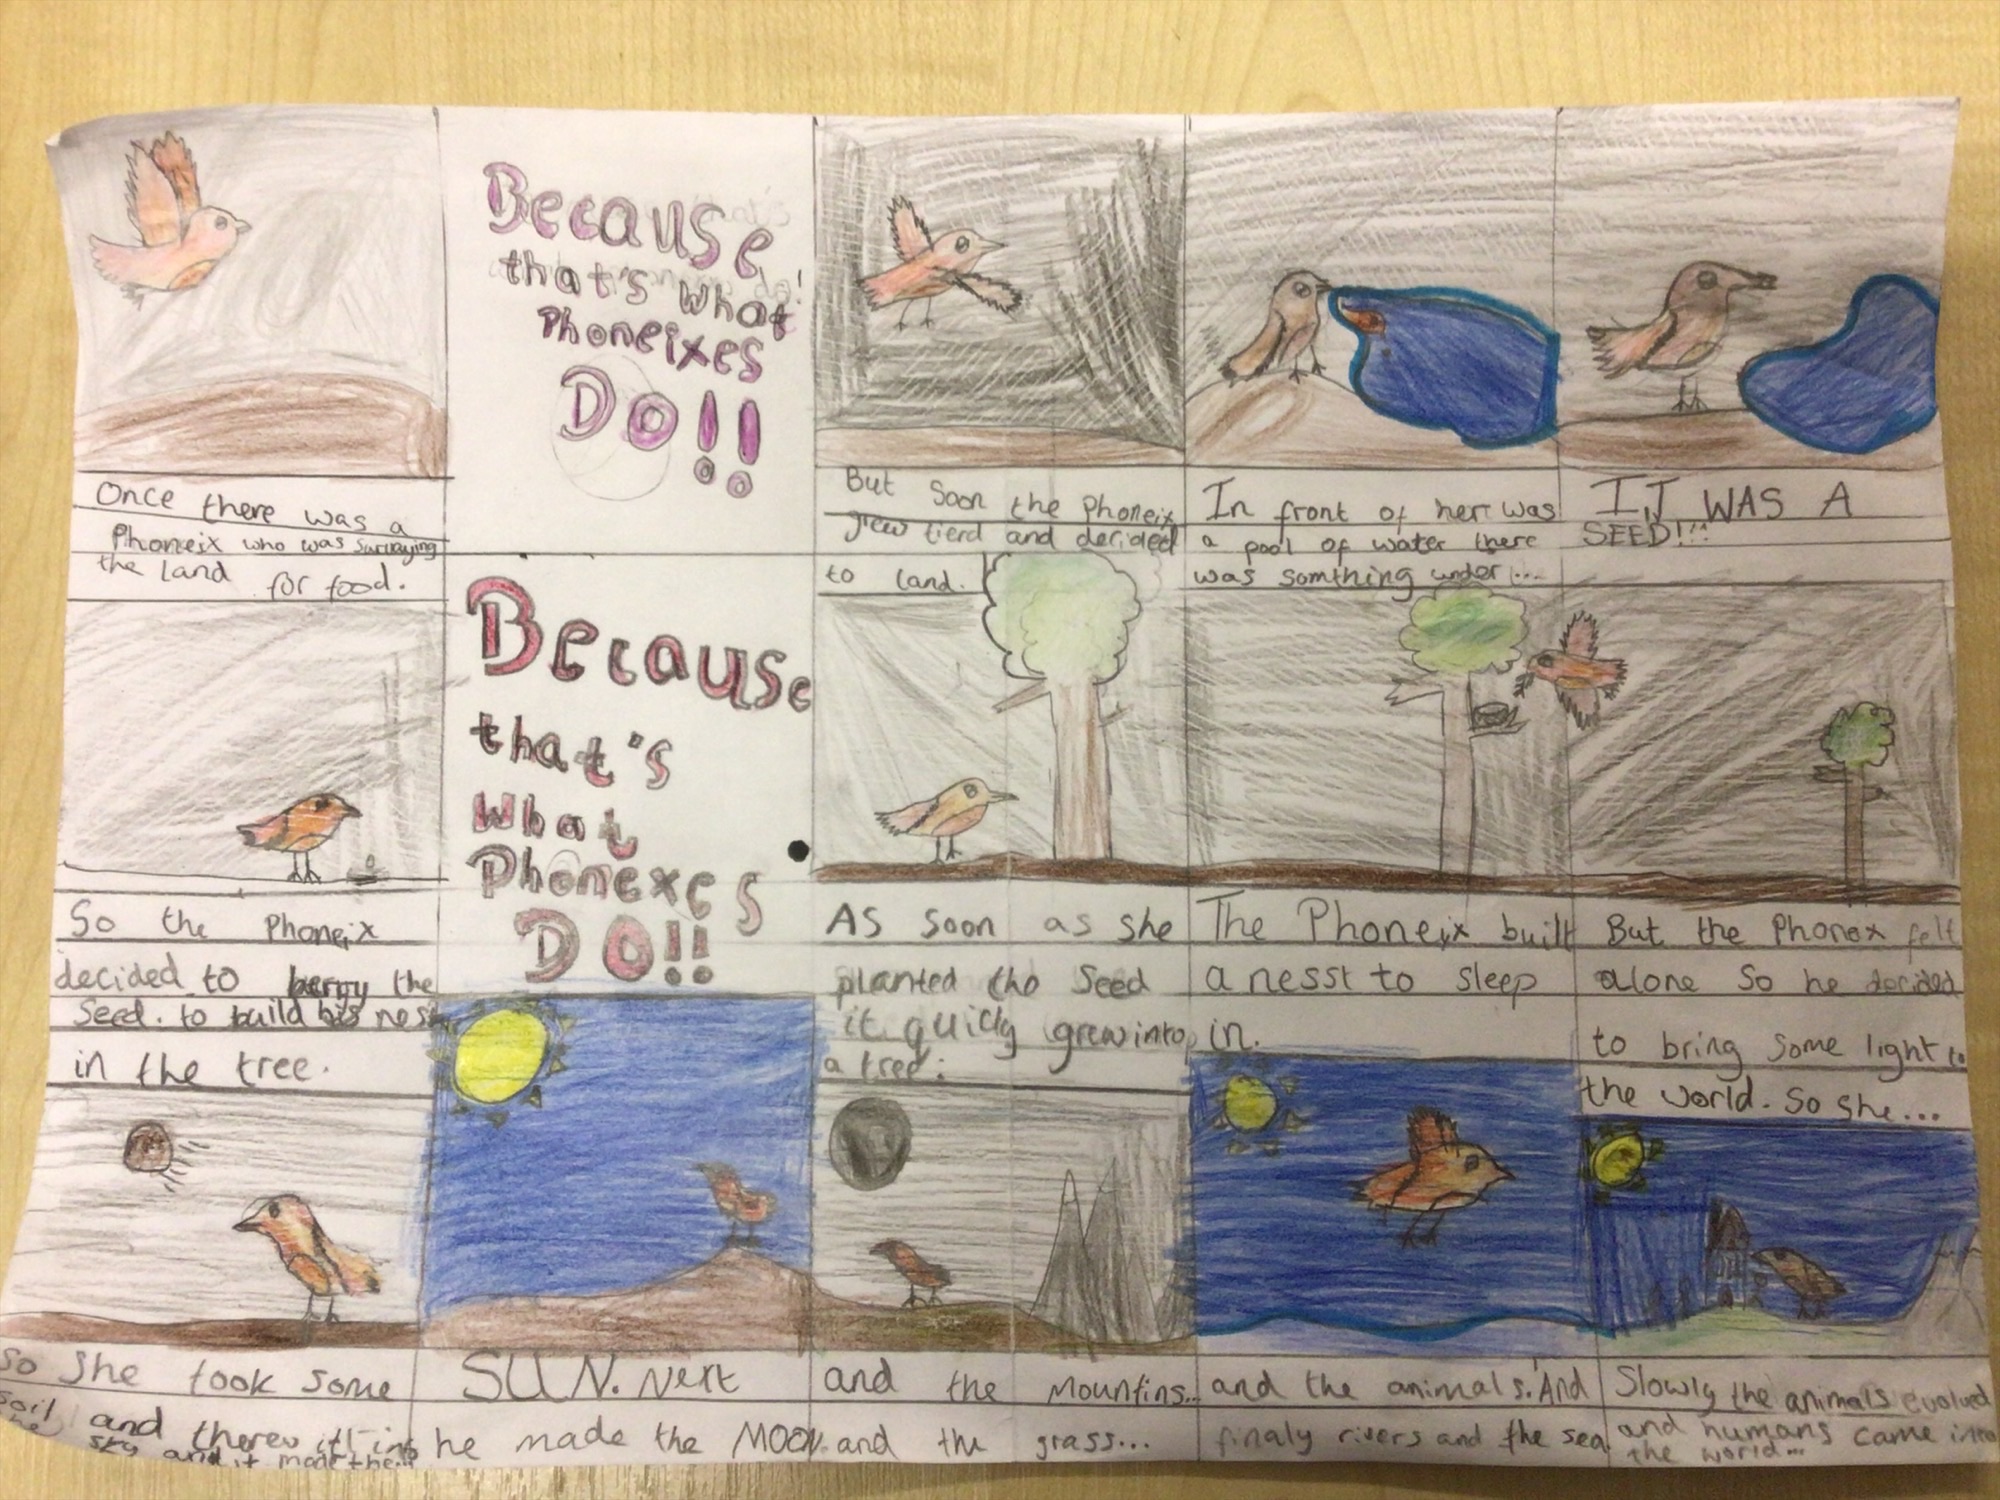 Once there was a
Phoneix who was survaying
the land for food.
Because
that's what
Phoneixes
Do!!
But soon the Phoneix
grew tierd and decided
to land.
In front of her was
a pool of water there
was somthing under...
IT WAS A
SEED!!!
So the Phoneix
decided to berry the
seed. to build his nest
in the tree.
Because
that's
what
Phonexes
DO!!
As soon as she
planted the seed
it quicly grew into
a tree.
The Phoneix built
a nesst to sleep
in.
But the Phonex felt
alone so he decided
to bring some light to
the world. So she...
So she took some
soil and therew it into
the sky and it made the...
SUN. Next
he made the MOON.
and the mountins...
and the grass...
and the animals. And
finaly rivers and the sea
Slowly the animals evolved
and humans came into
the world...